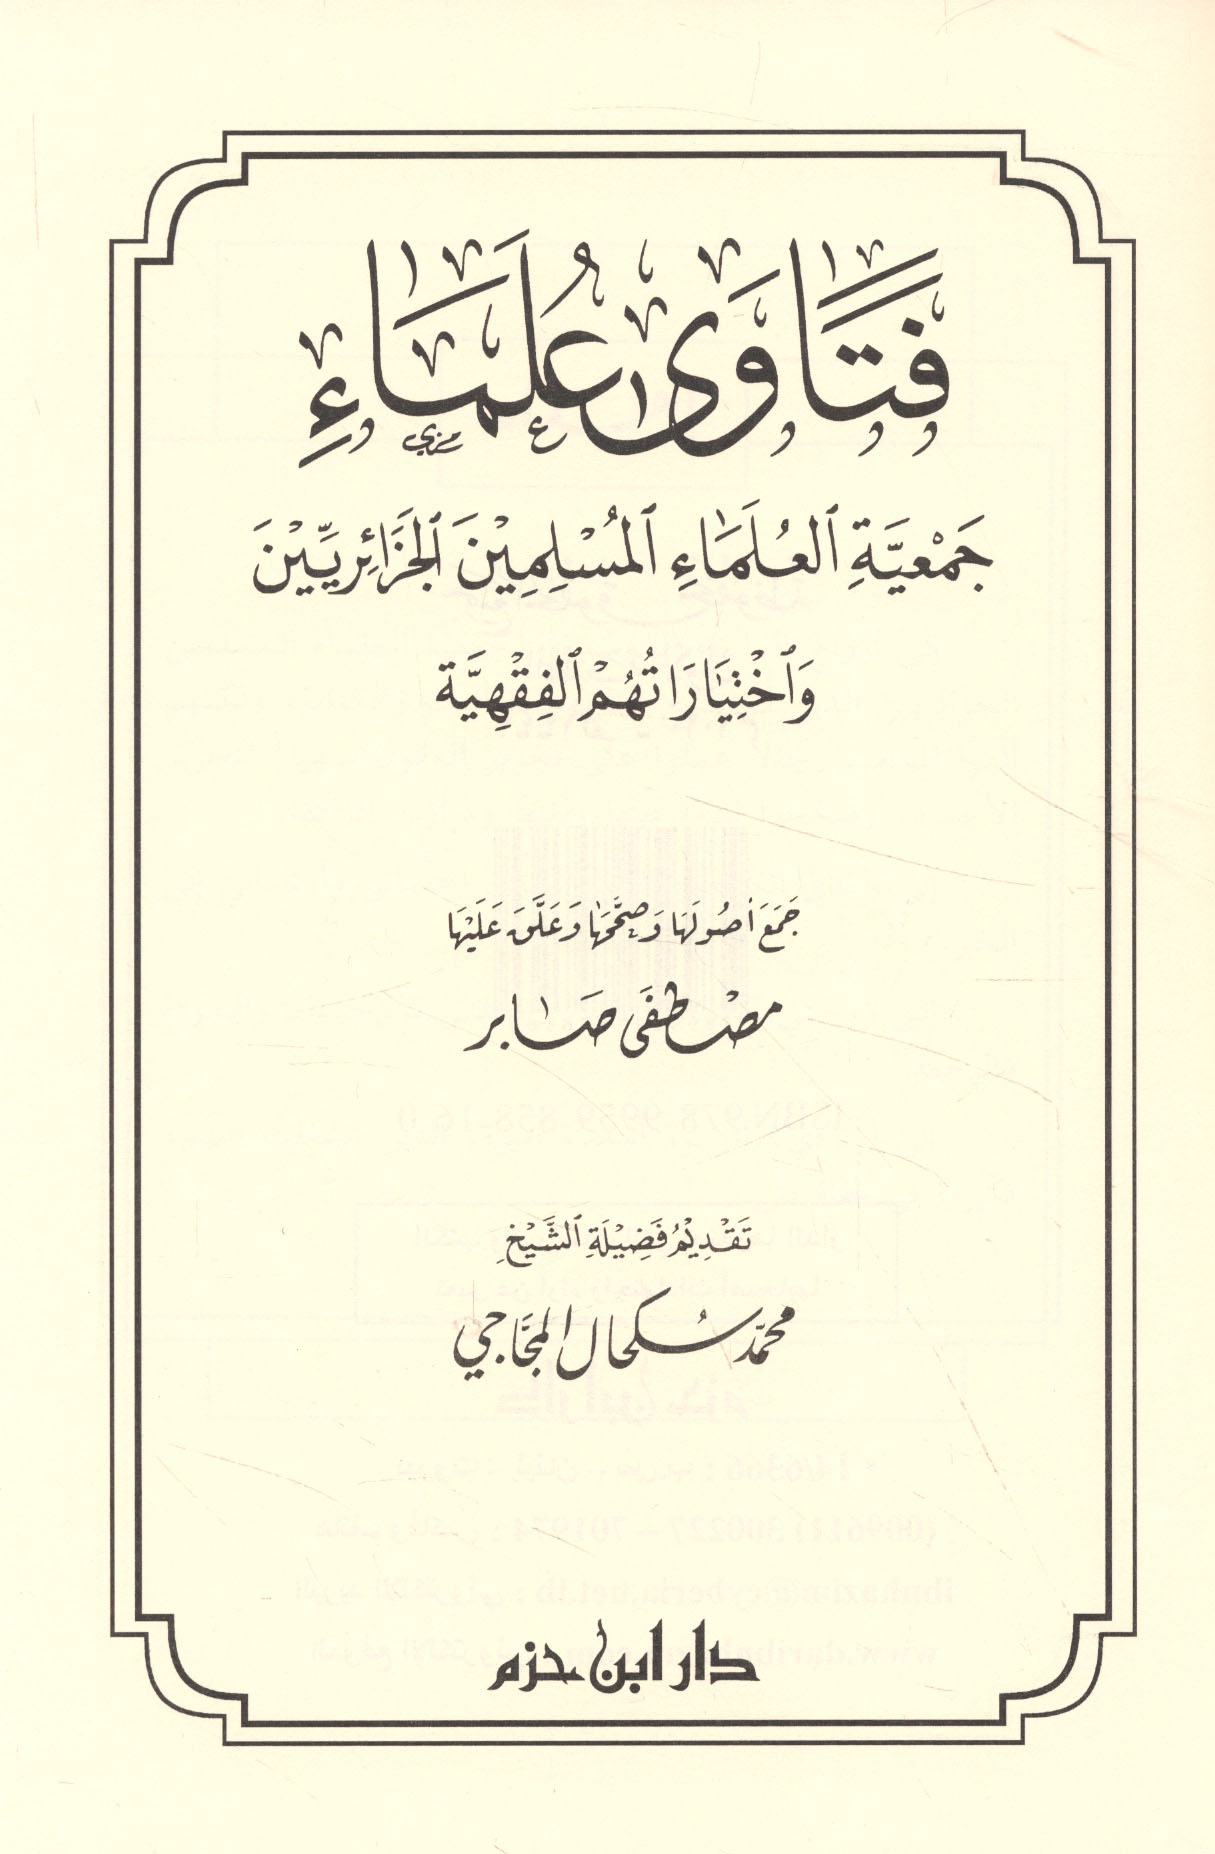 فَتَاوَى عُلَمَاءِ
جَمْعِيَّةِ ٱلعُلَمَاءِ ٱلمُسْلِمِيْنَ ٱلجَزَائِرِيِّيْنَ
وَٱخْتِيَارَاتُهُمْ ٱلفِقْهِيَّة
جَمَعَ أُصُولَهَا وَصَحَّحَهَا وَعَلَّقَ عَلَيْهَا
مصْطفَى صَابر
تَقْدِيْمُ فَضِيْلَةِ ٱلشَّيْخِ
محمّد سُكحال المَجَّاجي
دار ابن حزم